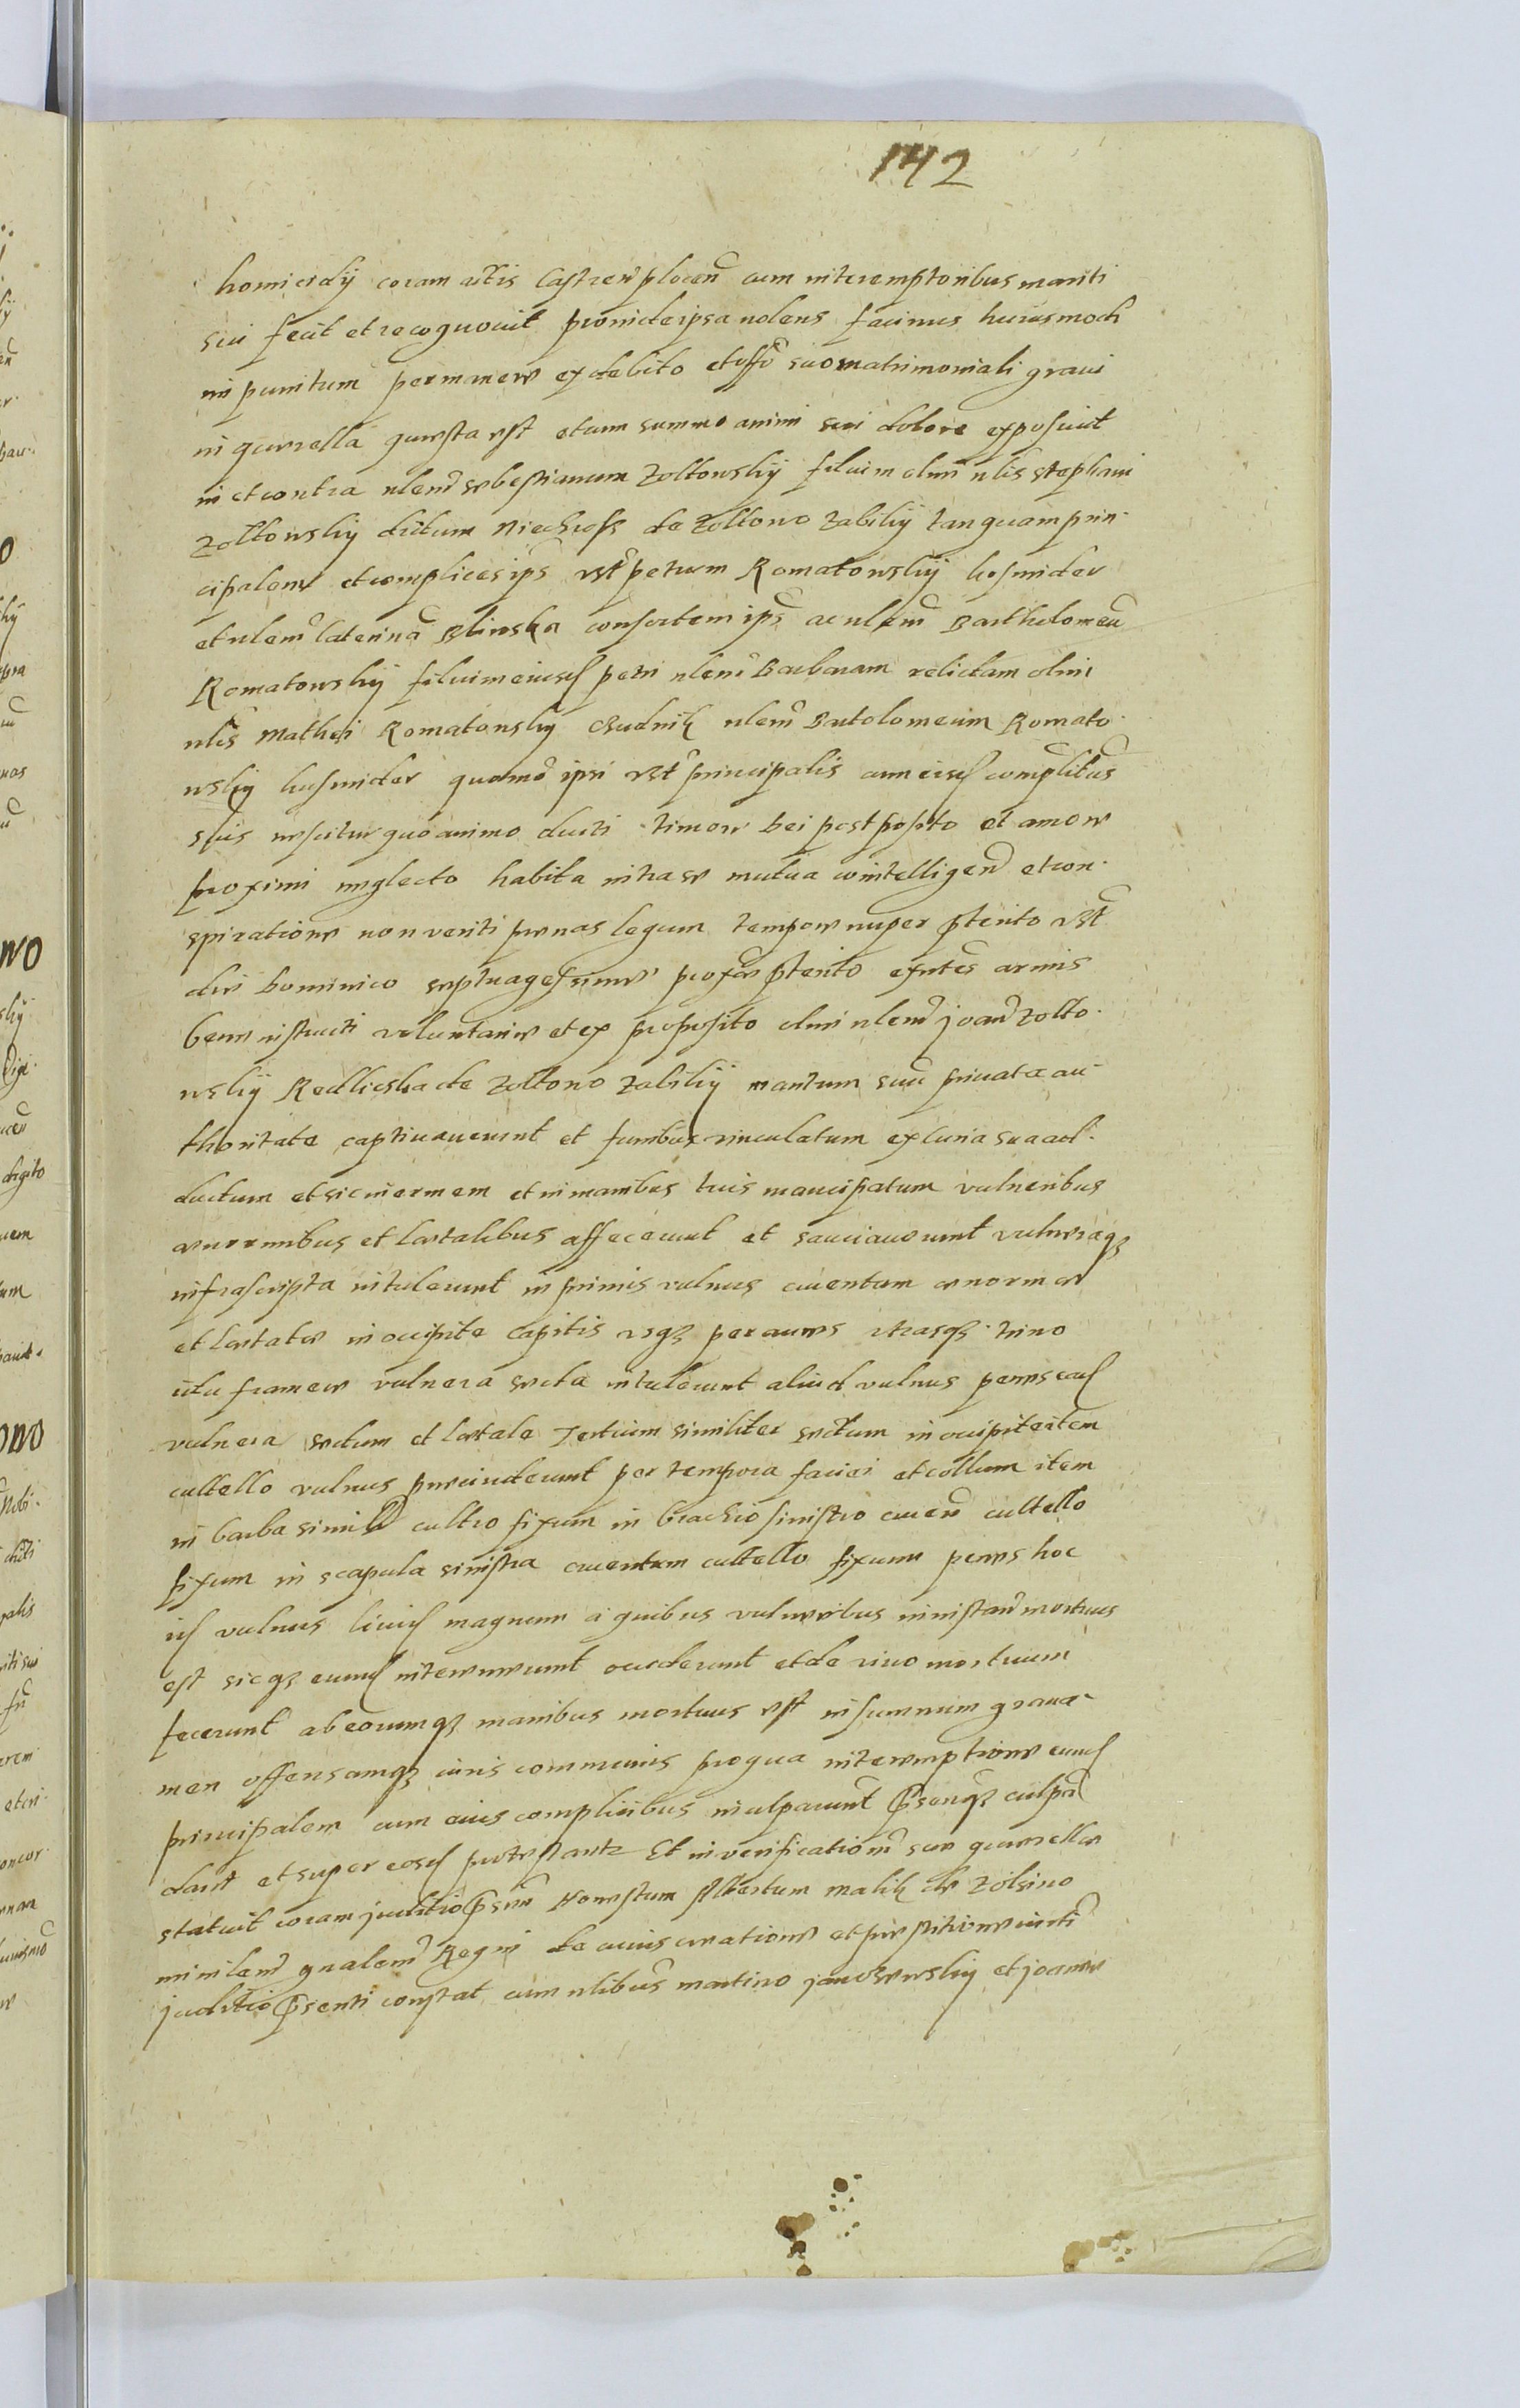 142
homicidij coram actis Castren plocen cum interemptoribus mariti
sui fecit et recognouit proinde ipsa nolens facinus huiusmodi
in punitum permanere ex debito et offo suo matrimoniali graui
in querella questa est et cum summo animi sui dolore exposuit
in et contra nlem sebestianum Zoltowskij filium olim nlis Stephani
Zoltowskij dictum de Zoltowo Zabikij tanquam prin
cipalem et complices ips vt petrum Romatowskij kosmider
et nlem Caterina Blinska consortem ips ac nlem Bartholomeu
Romatowskij filium eiusd petri nlem Barbaram relictam olim
nlis Mathei Romatowskij nlem Bartolomeum Romato
wskij kusmider quomo ipsi vt principalis cum eisd complicibus
suis nescitur quo animo ducti timore Dei postposito et amore
proximi neglecto habita intra se mutua cointelligen et con
spiratione non veriti penas legum tempore nuper pterito vt
die Dominico septuagesime proxe pterito exntes armis
bene instructi voluntarie et ex proposito olim nlem joan Zolto
wskij Redlicska de Zoltowo Zabikij maritum suu priuata au
thoritate captiuauerunt et funibus vinculatum ex curia sua ad
ductum et sic inermem et in manibus suis mancipatum vulneribus
enormibus et letalibus affecerunt et sauciauerunt vulneraq
infrascripta intulerunt in primis vulnus cruentum enorme
et letale in occipite capitis vsq per aures vtrasq trino
ictu framee vulnera secta intulerunt aliud vulnus penes ead
vulnera sectum et letale Tertium similiter sectum in occipite item
cultello vulnus presciderunt per tempora faciei et collum item
in barba simili cultro fixum in brachio sinistro cruen cultello
fixum in scapula sinistra cruentum cultello fixum penes hoc
id vulnus liuid magnum a quibus vulneribus in instan mortuus
est sicq eund interemerunt occiderunt et de viuo mortuum
fecerunt ab eorumq manibus mortuus est in summum graua
men offensamq iuris communis pro qua interemptione eund
principalem cum eius complicibus inculpauit psenq culpa
dant et super eosd protestantr Et in verificatione sue querelle
statuit coram juditio psen Honestum Albertum malik de Zolsino
ministerialem gnalem Regni de cuius creatione et prestitione iurti
juditio psenti constat cum nlibus martino janoszewskij et joanne